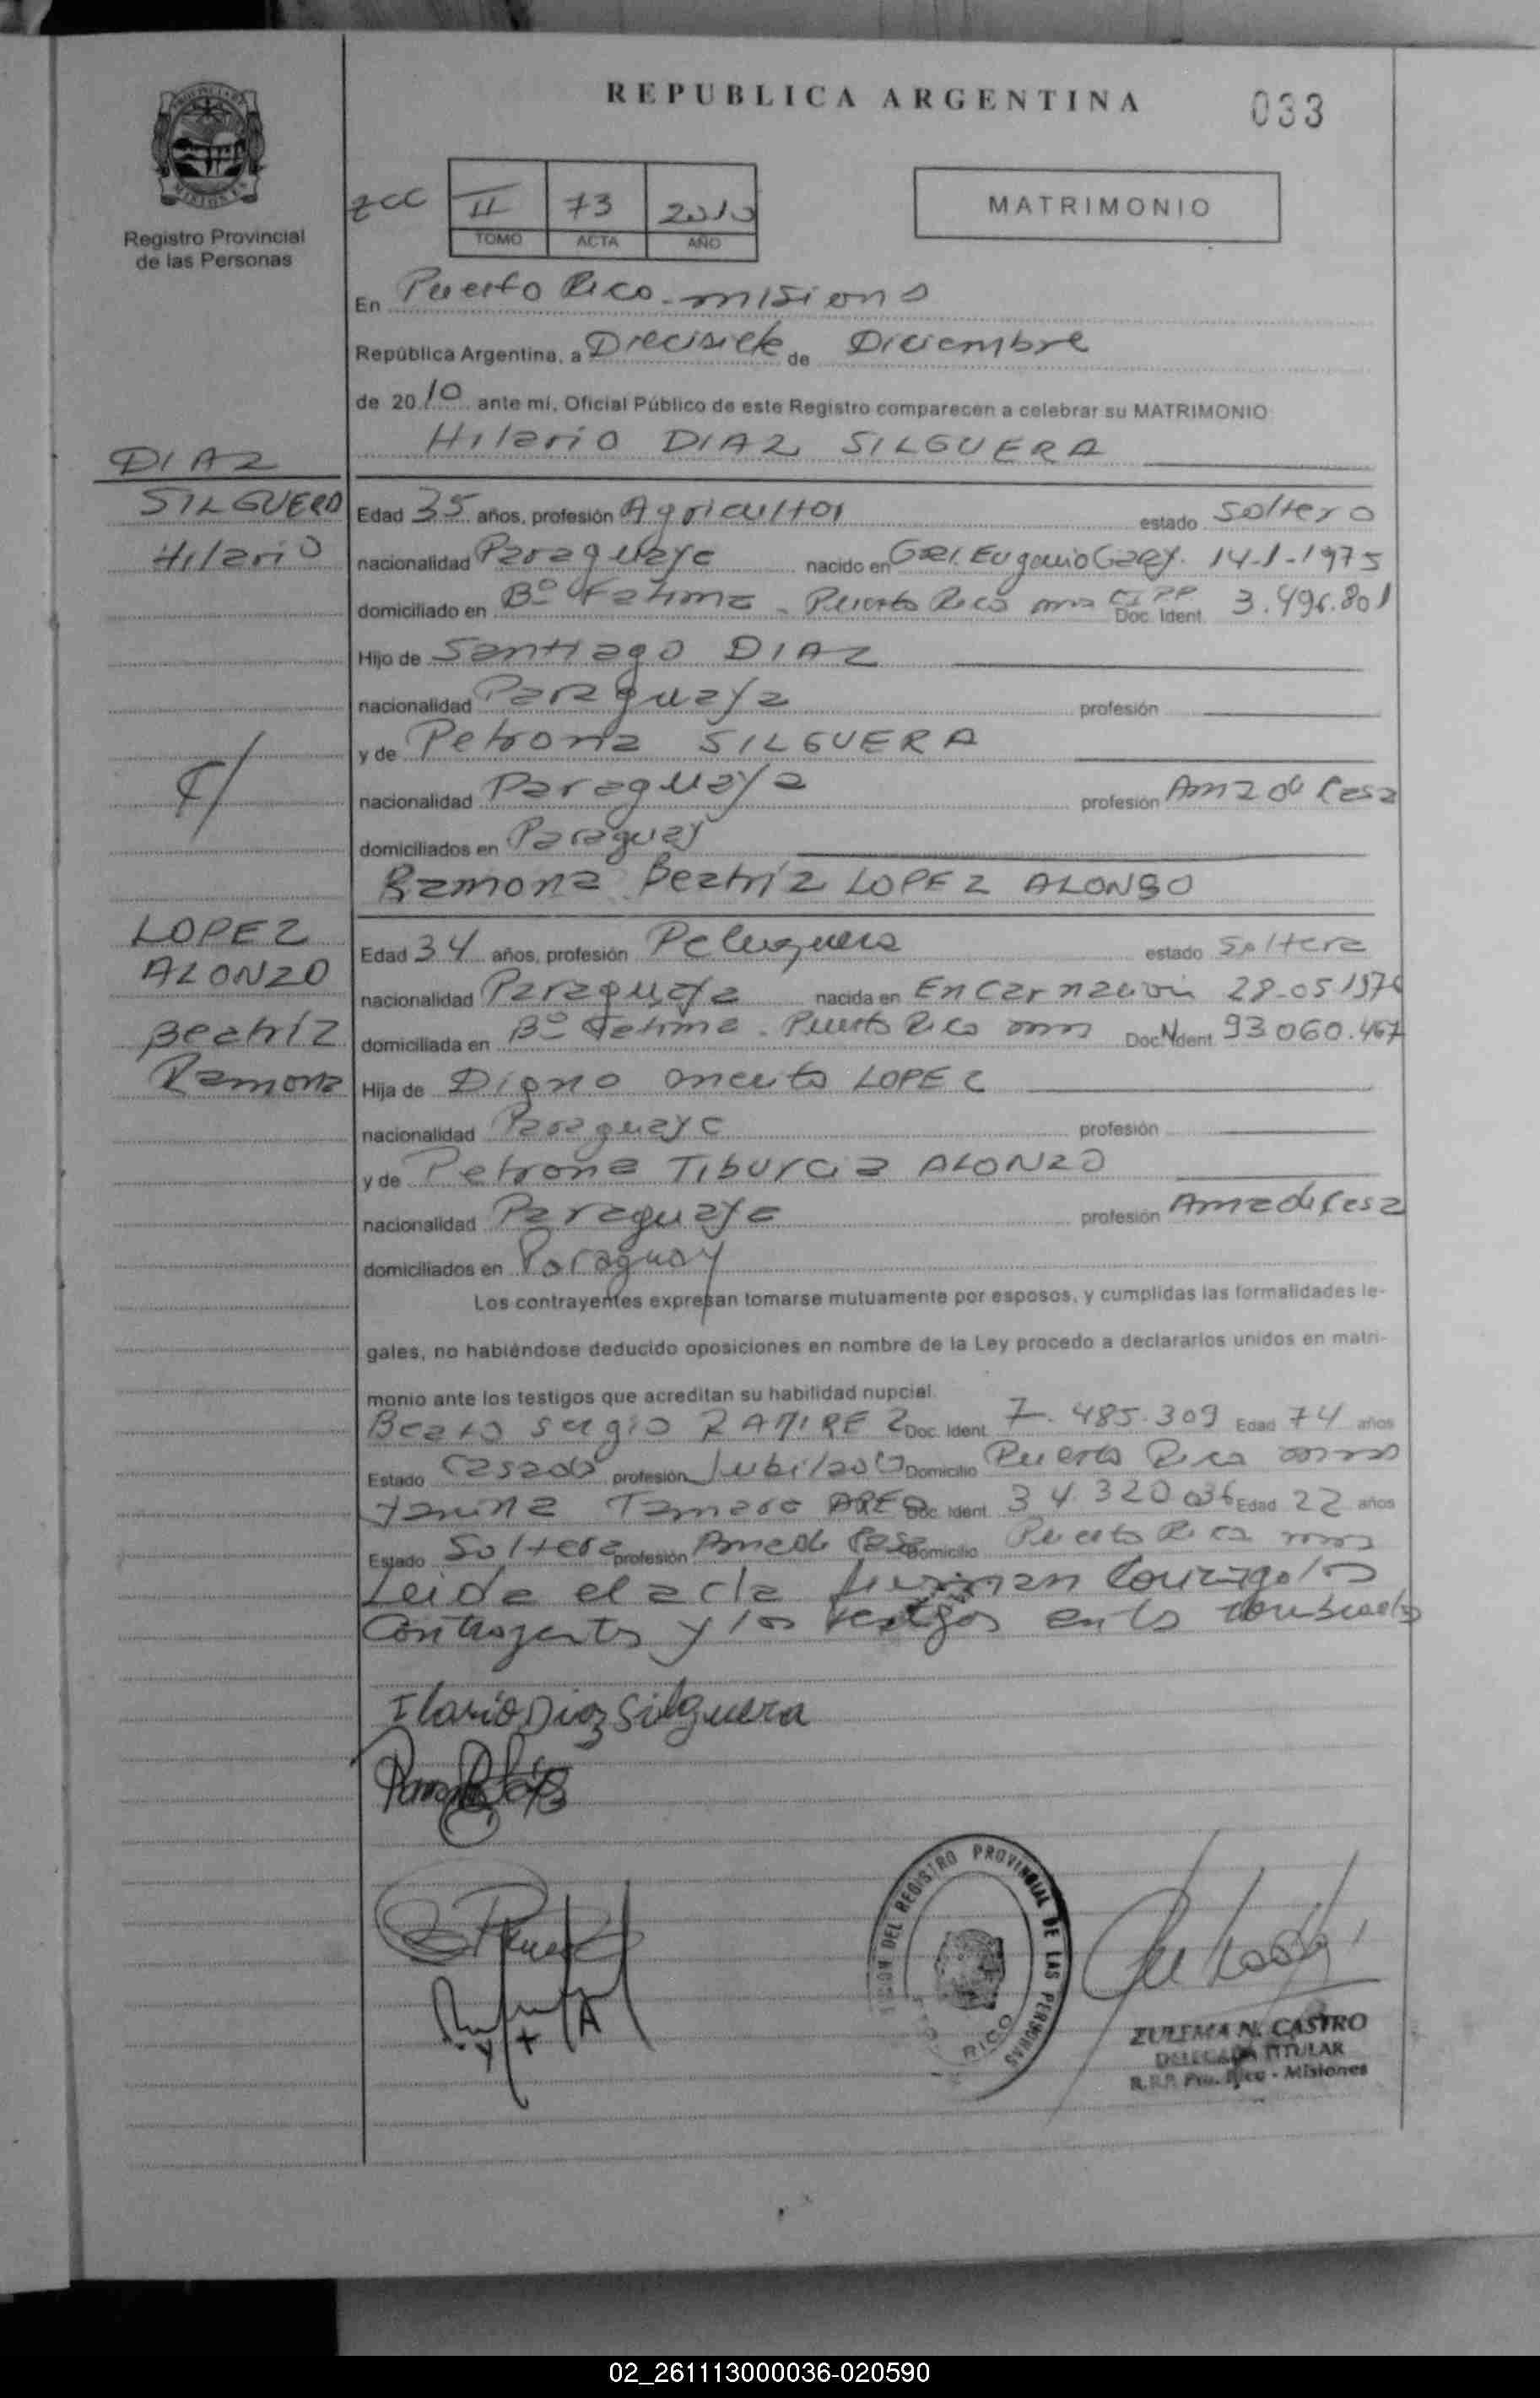 REPUBLICA ARGENTINA
033
MISIONES
Registro Provincial
de las Personas
II 73 2010
TOMO ACTA AÑO
MATRIMONIO
En Puerto Rico - misiones
República Argentina, a Diecisiete de Diciembre
de 2010 ante mí, Oficial Público de este Registro comparecen a celebrar su MATRIMONIO
Hilario DIAZ SILGUERA
DIAZ
SILGUERO
Hilario
Edad 35 años, profesión Agricultor estado soltero
nacionalidad Paraguaya nacido en Gral. Eugenio Garay. 14-1-1975
domiciliado en Bº Fatima - Puerto Rico mns CIPP Doc. Ident. 3.496.801
Hijo de Santiago DIAZ
nacionalidad Paraguaya profesión
y de Petrona SILGUERA
nacionalidad Paraguaya profesión Ama de Casa
domiciliados en Paraguay
Ramona Beatriz LOPEZ ALONSO
LOPEZ
ALONZO
Beatriz
Ramona
Edad 34 años, profesión Peluquera estado Soltera
nacionalidad Paraguaya nacida en Encarnación 28-05-1976
domiciliada en Bº Fatima - Puerto Rico mns Doc. Ident. 93.060.467
Hija de Digno Merito LOPEZ
nacionalidad Paraguaya profesión
y de Petrona Tiburcia ALONZO
nacionalidad Paraguaya profesión Ama de Casa
domiciliados en Paraguay
Los contrayentes expresan tomarse mutuamente por esposos, y cumplidas las formalidades le-
gales, no habiéndose deducido oposiciones en nombre de la Ley procedo a declararlos unidos en matri-
monio ante los testigos que acreditan su habilidad nupcial.
Sergio RAMIREZ Doc. Ident. 7.485.309 Edad 74 años
Estado Casado profesión Jubilado Domicilio Puerto Rico mns
Yanina Tamara Doc. Ident. 34.320.036 Edad 22 años
Estado Soltera profesión Ama de Casa Domicilio Puerto Rico mns
Leida el acta firman conmigo los
Contrayentes y los testigos
Ilario Diaz Silguera
REGISTRO PROVINCIAL DE LAS PERSONAS
RICO
ZULEMA N. CASTRO
DELEGADA TITULAR
R.P.P. Pto. Rico - Misiones
02_261113000036-020590